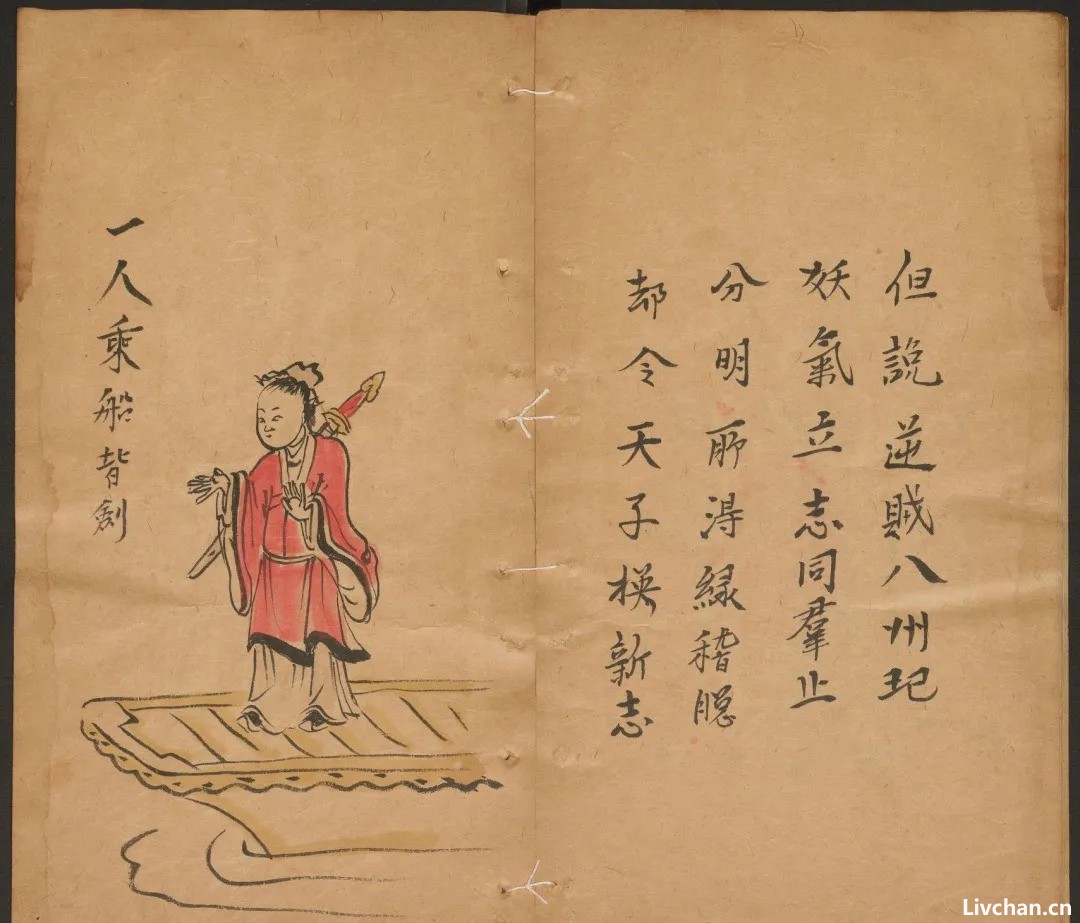 但說逆賊八州圯
妖氣立志同羣止
分明所淂緑稽聪
却令天子模新志
一人乘船背劍
Livchan.cn